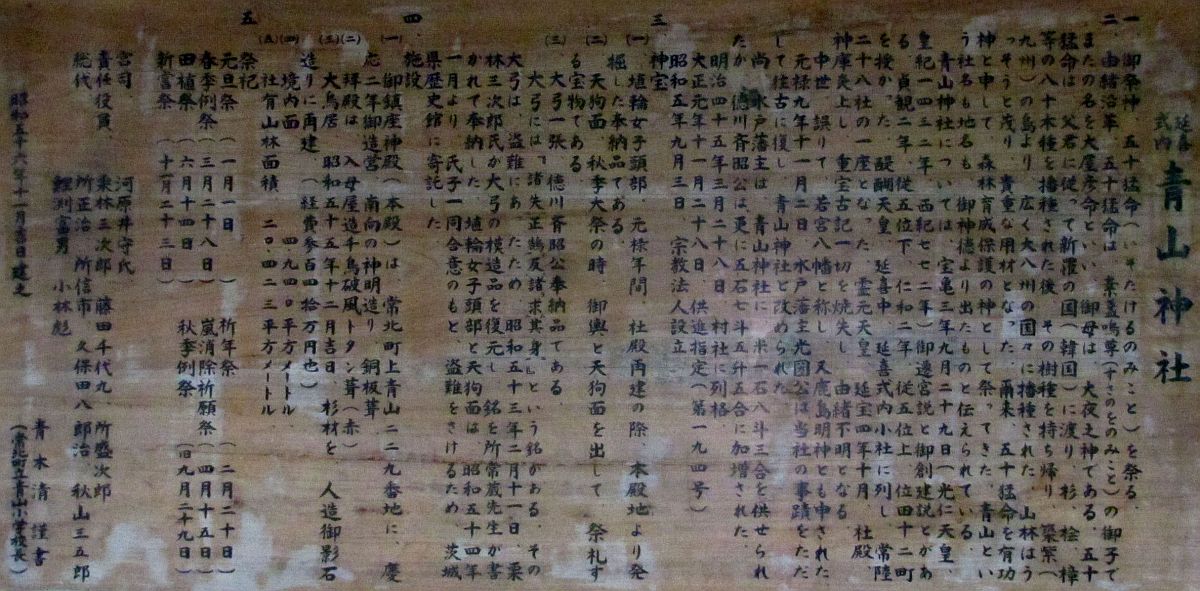 延喜式内 青山神社
一、御祭神、五十猛命(いそたけるのみこと)を祭る。
二、由緒沿革、五十猛命は、素盞嗚尊(すさのをのみこと)の御子で
またの名を大屋彦命といい、御母は、大夜之神である。五十
猛命は、父君に従って新羅の国(韓国)に渡り、杉、桧、樟
等の八十木種を播種された後、その樹種を持ち帰り、築紫(
九州)の島より、広く大八州の国々に播種された、山林はう
っそうと茂り、貴重な用材となった、爾来、五十猛命を有功
神と申して、森林育成保護の神として祭ってきた、青山とい
う社名も地名も、御神徳より出たものと伝えられている。
青山神社については、宝亀三年九月二十九日(光仁天皇、
皇紀一四三二年、西紀七七二年)御遷宮説と御創建説とがあ
る、貞観二年、従五位下、仁和二年、従五位上、位四十二町
を授かった、醍醐天皇、延喜中、延喜式内小社に列し、常陸
二十八社の一座となった、霊元天皇、延宝四年十月、社殿、
神庫炎上し、重宝古記一切を焼失し、由緒不明となる
中世、誤りて、若宮八幡と称し、又鹿島明神とも申された
元禄九年十一月二日、水戸藩主光圀公は当社の事蹟をただ
して往古に復し、青山神社と改められた、
尚、水戸藩主は、青山神社に、米一石八斗三合を供せられ
たが、徳川斉昭公は更に五石七斗五升五合に加増された、
明治四十五年三月二十八日、村社に列格、
大正元年十一月二十八日、供進指定(第一九四号)
昭和五年九月三日、宗教法人設立、
三、神宝
(一)、埴輪女子頭部、元禄年間、社殿再建の際、本殿地より発
掘した奉納品である、
(二)、天狗面、秋季大祭の時、御輿と天狗面を出して、祭礼す
る宝物である、
(三)、大弓一張、徳川斉昭公奉納品である、
大弓には「諸失正鵠反諸求其身」という銘がある、その
大弓は、盗難にあったため、昭和五十三年二月十一日、栗
林三次郎氏が大弓の模造品を復元し、銘を所常蔵先生が書
かれて奉納した、埴輪女子頭と天狗面は、昭和五十四年
一月より、氏子一同合意のもと、盗難をさけるため、茨城
県歴史館に寄託した、
四、施設
(一)、御鎮座神殿(本殿)は、常北町上青山二二九番地に、慶
応二年御造営、南向の神明造り、銅板葺
(二)、拝殿は、入母屋造千鳥破風トタン葺(赤)
(三)、大鳥居、昭和五十五年十二月吉日、杉材を、人造御影石
造りに再建、(経費参百四拾万円也)
(四)、境内面、四九四〇平方メートル
(五)、社有山林面積、二〇四二三平方メートル
五、祭祀
元旦祭(一月一日) 祈年祭(二月二十日)
春季例祭(三月二十八日) 嵐消除祈願祭(四月十五日)
田植祭(六月十四日) 秋季例祭(旧九月二十九日)
新嘗祭(十一月二十三日)
宮司 河原井守氏
責任役員、栗林三次郎、藤田千代九、所盛次郎
総代 所正治、所信市、久保田八郎治、秋山三五郎
鯉渕富男、小林彪
青木清謹書
昭和五十六年十一月吉日建之 (常北町立青山小学校長)